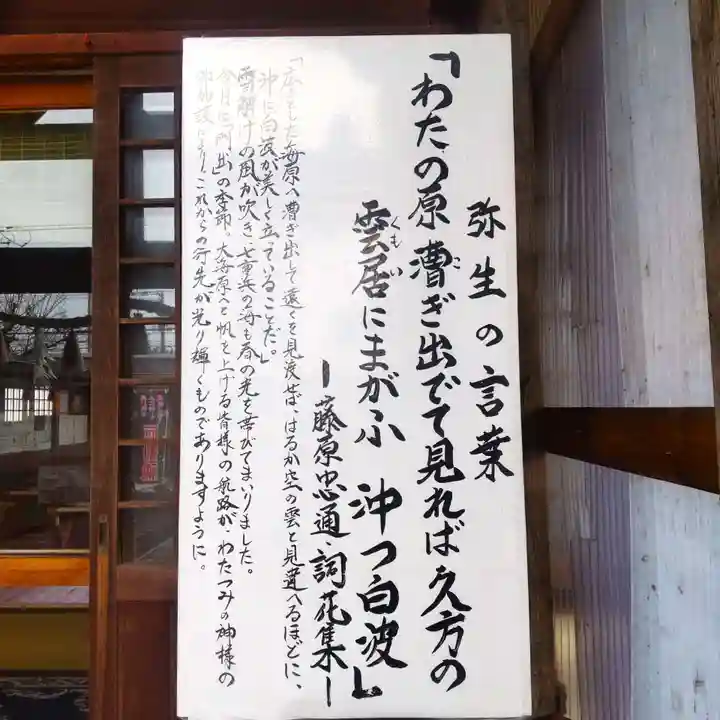 弥生の言葉
「わたの原漕ぎ出でて見れば久方の
雲居にまがふ 沖つ白波」
ー藤原忠通・詞花集ー
「広々とした海原へ漕ぎ出して遠くを見渡せば、はるか空の雲と見違へるほどに、
沖に白波が美しく立っていることだ。」
雪解けの風が吹き、七重浜の海も春の光を帯びてまいりました。
今月は「門出」の季節。大海原へと帆を上げる皆様の航路が、わたつみの神様の
により、これからの行先が光り輝くものでありますように。